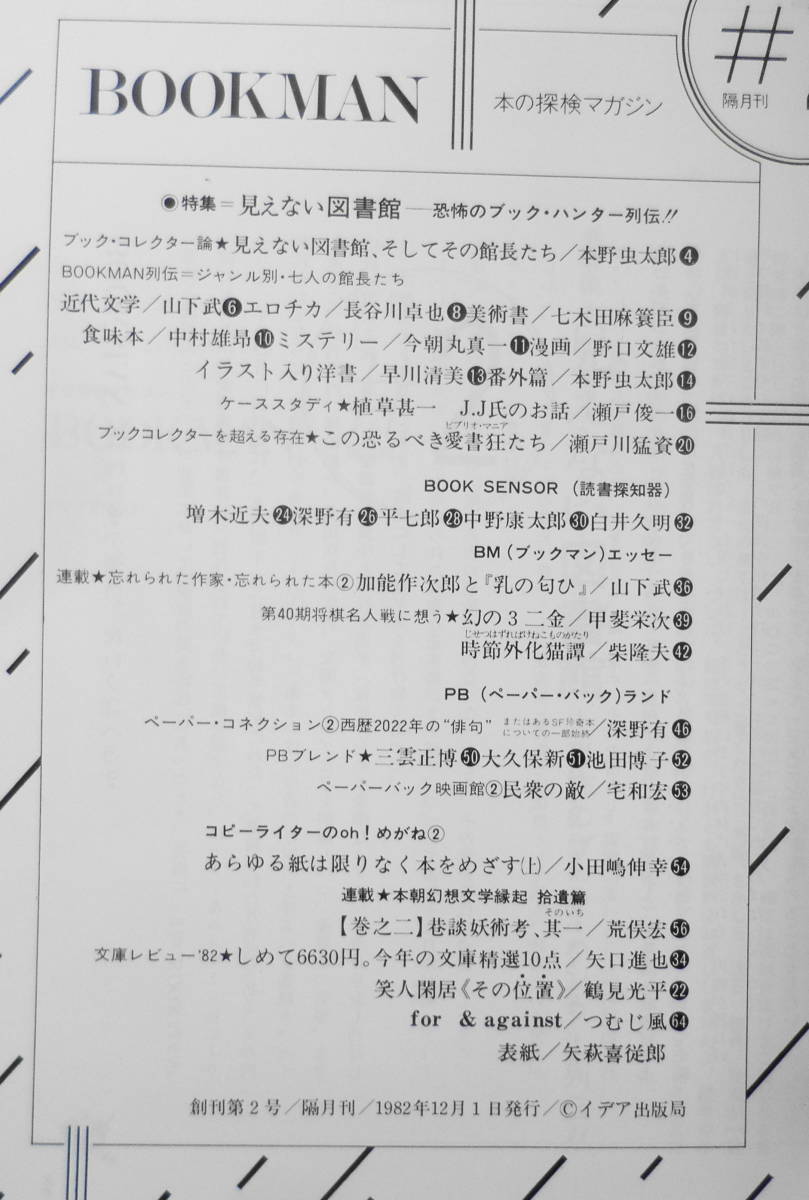 BOOKMAN
本の探検マガジン
#
隔月刊
◉特集＝見えない図書館―恐怖のブック・ハンター列伝!!
ブック・コレクター論★見えない図書館、そしてその館長たち／本野虫太郎❹
BOOKMAN列伝＝ジャンル別・七人の館長たち
近代文学／山下武❻エロチカ／長谷川卓也❽美術書／七木田麻簑臣❾
食味本／中村雄昂❿ミステリー／今朝丸真一⓫漫画／野口文雄⓬
イラスト入り洋書／早川清美⓭番外篇／本野虫太郎⓮
ケーススタディ★植草甚一　J.J氏のお話／瀬戸俊一⓰
ビブリオ・マニア
ブックコレクターを超える存在★この恐るべき愛書狂たち／瀬戸川猛資⓴
BOOK SENSOR（読書探知器）
増木近夫㉔深野有㉖平七郎㉘中野康太郎㉚白井久明㉜
BM（ブックマン）エッセー
連載★忘れられた作家・忘れられた本②加能作次郎と『乳の匂ひ』／山下武㊱
第40期将棋名人戦に想う★幻の３二金／甲斐栄次㊴
じせつはずればけねこものがたり
時節外化猫譚／柴隆夫㊷
PB（ペーパー・バック）ランド
ペーパー・コネクション②西歴2022年の“俳句”またはあるSF珍奇本についての一部始終／深野有㊻
PBブレンド★三雲正博㊿大久保新51池田博子52
ペーパーバック映画館②民衆の敵／宅和宏53
コピーライターのoh！めがね②
あらゆる紙は限りなく本をめざす(上)／小田嶋伸幸54
連載★本朝幻想文学縁起 拾遺篇
そのいち
【巻之二】巷談妖術考、其一／荒俣宏56
文庫レビュー'82★しめて6630円。今年の文庫精選10点／矢口進也㉞
笑人閑居《その位置》／鶴見光平㉒
for & against／つむじ風64
表紙／矢萩喜従郎
創刊第２号／隔月刊／1982年12月１日発行／©イデア出版局